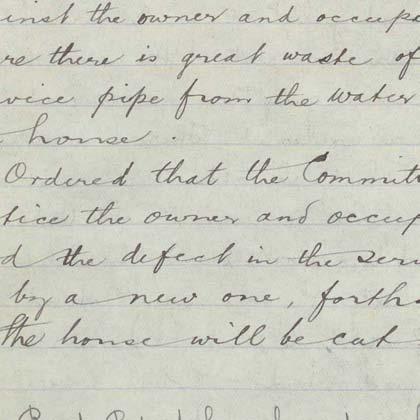 inst the owner and occupe
re there is great waste of
vice pipe from the water
house .
Ordered that the Committ
tice the owner and occup
d the defect in the serv
by a new one, forth
the house will be cut